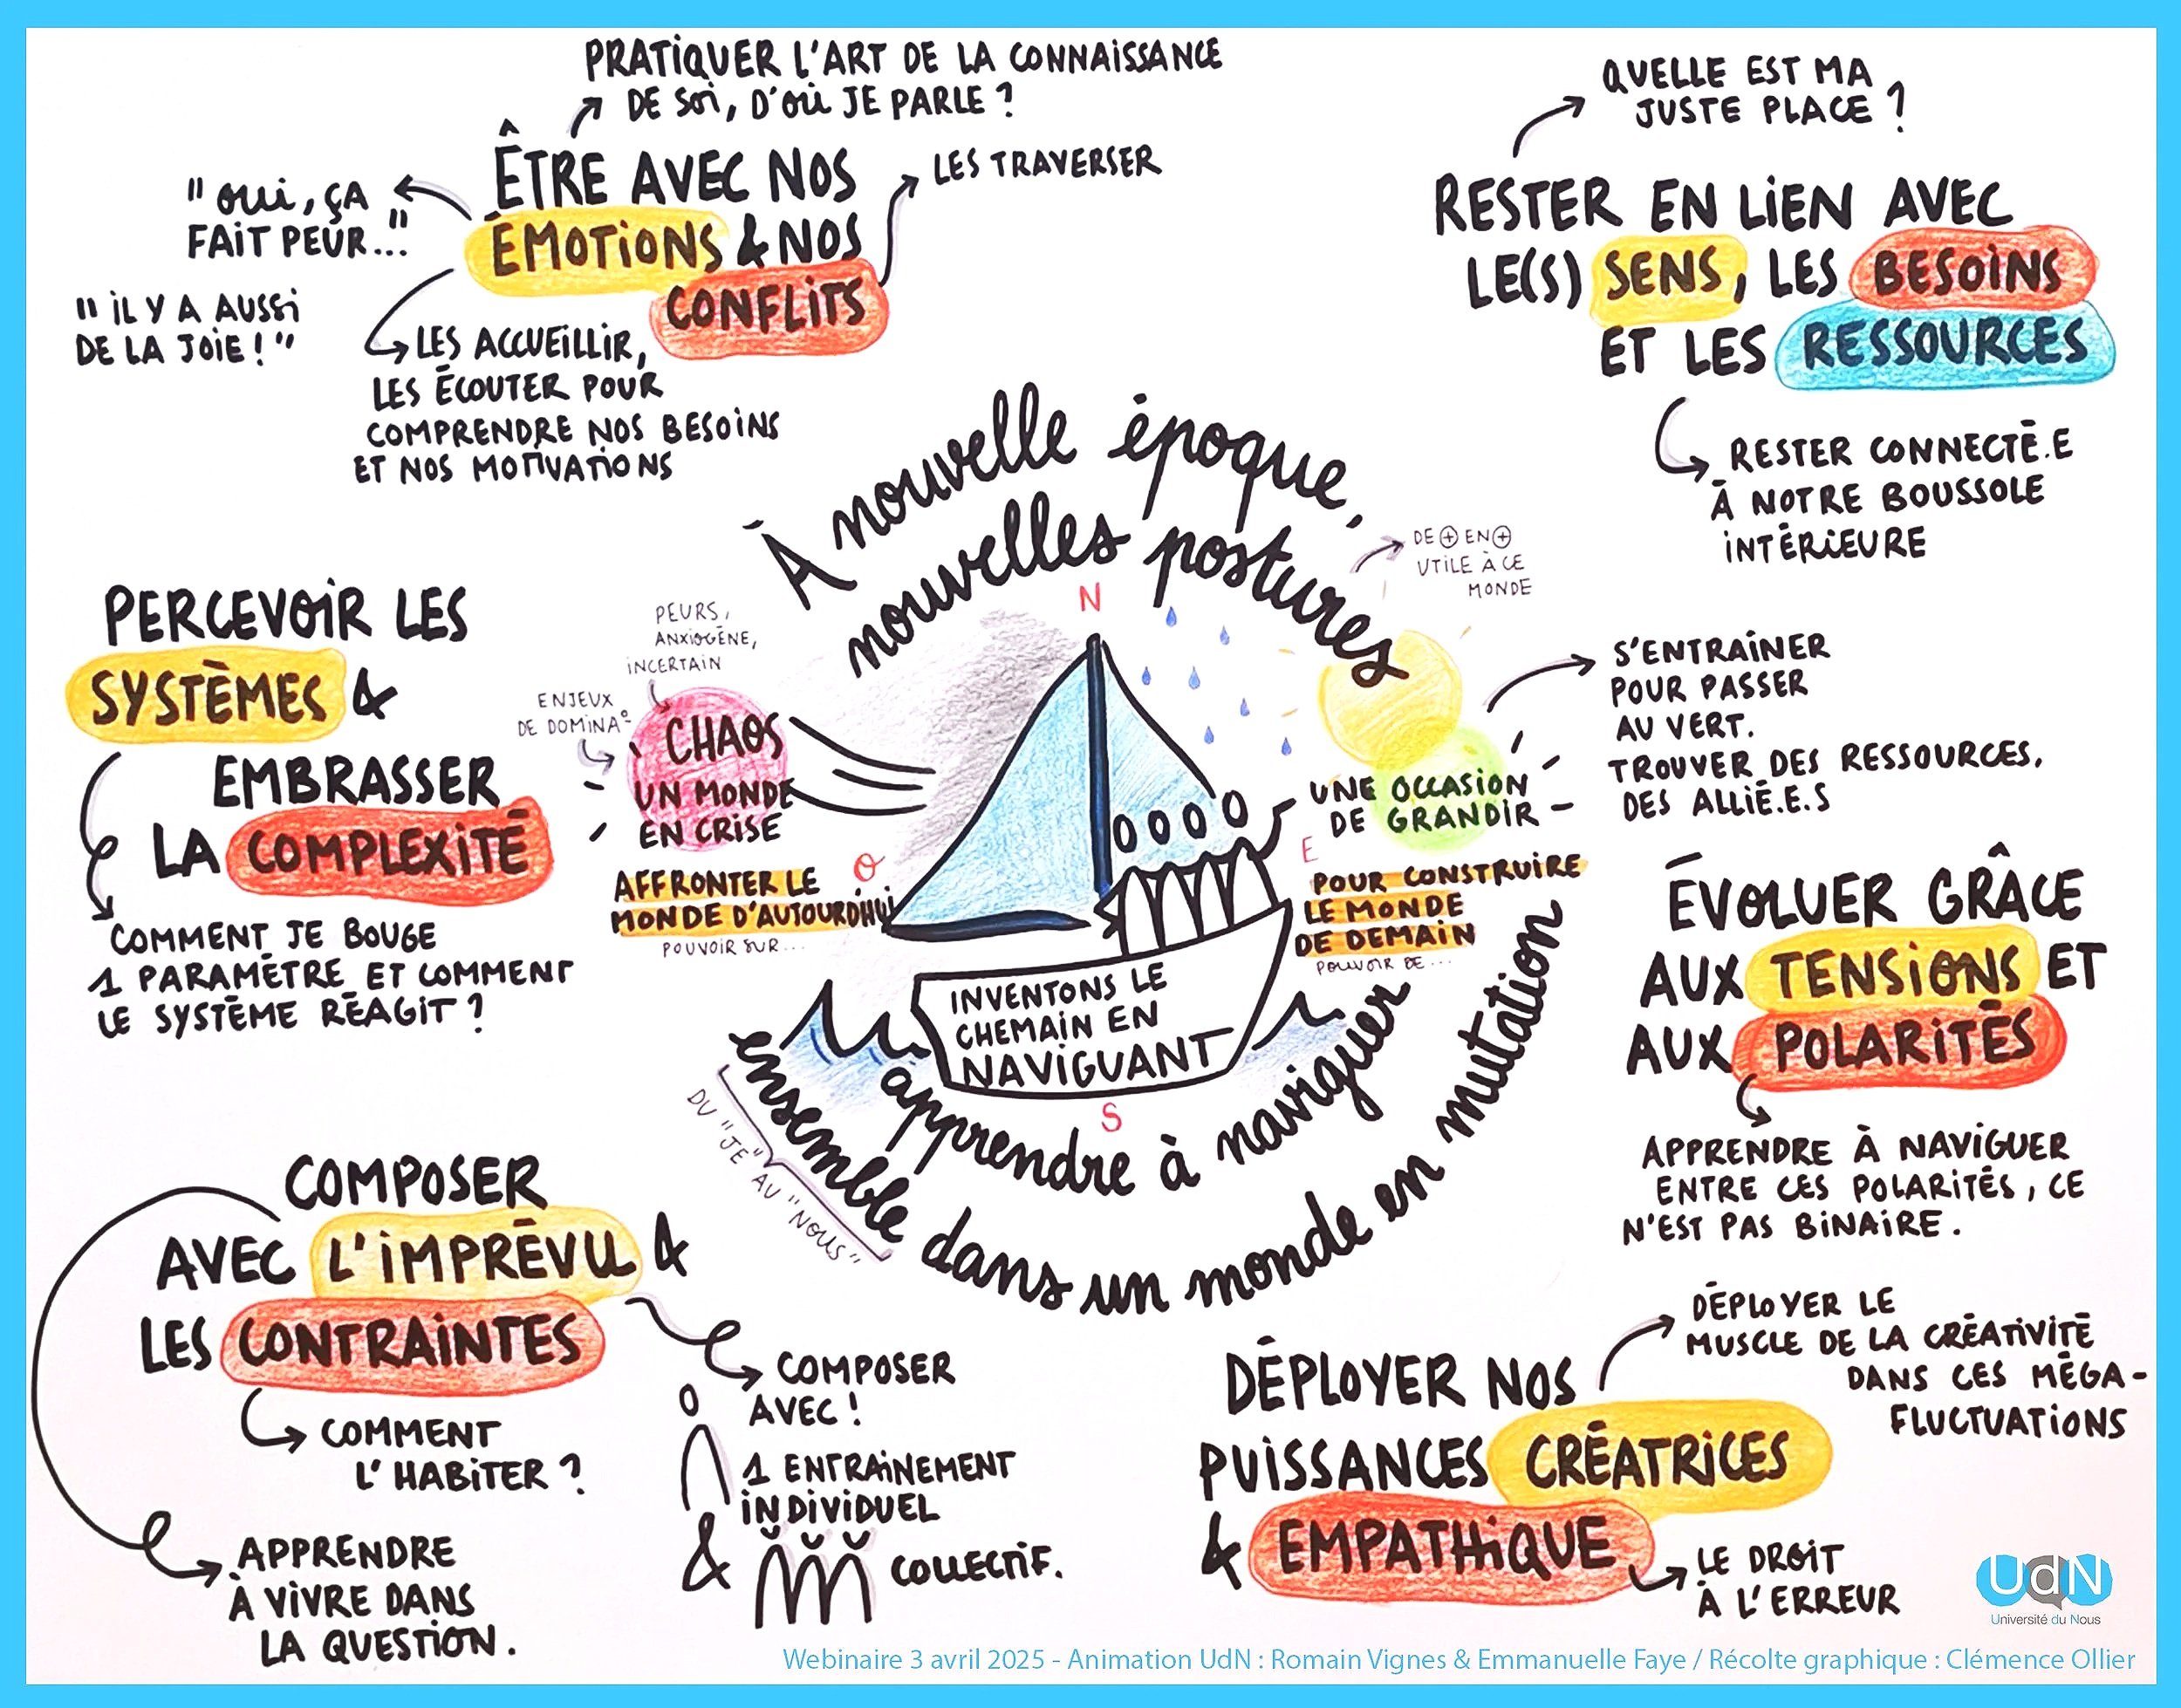 PRATIQUER L'ART DE LA CONNAISSANCE
DE SOI, D'OÙ JE PARLE ?
ÊTRE AVEC NOS
ÉMOTIONS & NOS
CONFLITS
LES TRAVERSER
" OUI, ÇA
FAIT PEUR..."
" IL Y A AUSSI
DE LA JOIE ! "
LES ACCUEILLIR,
LES ÉCOUTER POUR
COMPRENDRE NOS BESOINS
ET NOS MOTIVATIONS
QUELLE EST MA
JUSTE PLACE ?
RESTER EN LIEN AVEC
LE(S) SENS, LES BESOINS
ET LES RESSOURCES
RESTER CONNECTÉ.E
À NOTRE BOUSSOLE
INTÉRIEURE
À nouvelle époque,
nouvelles postures
DE ⊕ EN ⊕
UTILE À CE
MONDE
PERCEVOIR LES
SYSTÈMES &
EMBRASSER
LA COMPLEXITÉ
COMMENT JE BOUGE
1 PARAMÈTRE ET COMMENT
LE SYSTÈME RÉAGIT ?
PEURS,
ANXIOGÈNE,
INCERTAIN
ENJEUX
DE DOMINA°
CHAOS
UN MONDE
EN CRISE
AFFRONTER LE
MONDE D'AUJOURD'HUI
POUVOIR SUR...
N
O
E
S
UNE OCCASION
DE GRANDIR
POUR CONSTRUIRE
LE MONDE
DE DEMAIN
POUVOIR DE...
S'ENTRAÎNER
POUR PASSER
AU VERT.
TROUVER DES RESSOURCES,
DES ALLIÉ.E.S
INVENTONS LE
CHEMAIN EN
NAVIGUANT
apprendre à naviguer
ensemble dans un monde en mutation
DU "JE" AU "NOUS"
ÉVOLUER GRÂCE
AUX TENSIONS ET
AUX POLARITÉS
APPRENDRE À NAVIGUER
ENTRE CES POLARITÉS, CE
N'EST PAS BINAIRE.
COMPOSER
AVEC L'IMPRÉVU &
LES CONTRAINTES
COMMENT
L'HABITER ?
APPRENDRE
À VIVRE DANS
LA QUESTION.
COMPOSER
AVEC !
1 ENTRAINEMENT
INDIVIDUEL
& COLLECTIF.
DÉPLOYER NOS
PUISSANCES CRÉATRICES
& EMPATHIQUE
DÉPLOYER LE
MUSCLE DE LA CRÉATIVITÉ
DANS CES MÉGA-
FLUCTUATIONS
LE DROIT
À L'ERREUR
UdN
Université du Nous
Webinaire 3 avril 2025 - Animation UdN : Romain Vignes & Emmanuelle Faye / Récolte graphique : Clémence Ollier